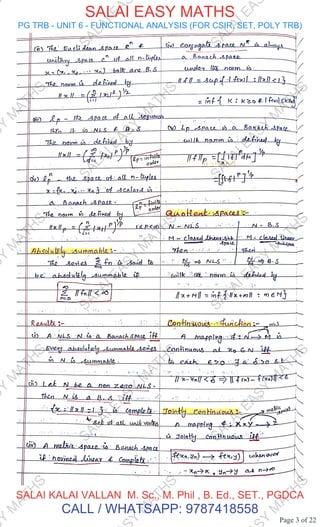 SALAI EASY MATHS
PG TRB - UNIT 6 - FUNCTIONAL ANALYSIS (FOR CSIR, SET, POLY TRB)
(ii) The Euclidean space Rⁿ &
unitary space Cⁿ of all n-tuples
x = (x₁, x₂, ... xₙ) both are B.S
The norm is defined by
||x|| = (Σ |xᵢ|²)^1/2
(iii) lp - the space of all sequences
then it is NLS & B.S
The norm is defined by
||x|| = (Σ |xᵢ|^p)^1/p
lp = infinite
(iv) lpⁿ - the space of all n-tuples
x = (x₁, x₂ .. xₙ) of scalars is
a Banach space.
lpⁿ = finite
The norm is defined by
||x||p = (Σ |xᵢ|^p)^1/p 1 ≤ p < ∞
Absolutely summable:-
The series Σ fn is said to
be absolutely summable if
Σ ||fn|| < ∞
Results:-
(i) A NLS N is a Banach space iff
every absolutely summable series
in N is summable
(ii) Let N be a non zero NLS.
then N is a B.S iff
{x : ||x|| = 1} is complete
set of all unit vectors
(iii) A metric space is Banach space
if normed linear & complete.
(iv) Conjugate space N* is always
a Banach space
under the norm is
||f|| = sup{|f(x)| : ||x|| ≤ 1}
= inf{K : K ≥ 0 & |f(x)| ≤ K||x||}
(v) Lp space is a Banach space
with norm is defined by
Quotient spaces:-
N - NLS N - B.S
M - closed linear space M - closed linear
Then then
N/M → NLS N/M → B.S
with the norm is defined by
||x+M|| = inf{||x+m|| : m ∈ M}
Continuous function:-
A mapping f : N → M is
continuous at x₀ ∈ N iff
to each ε > 0 ∃ a δ > 0 s.t
||x - x₀|| < δ ⇒ ||f(x) - f(x₀)|| < ε
Jointly continuous:-
A mapping f : X × Y → Z
is jointly continuous iff
f(xn, yn) → f(x, y) whenever
xn → x, yn → y as n → ∞
SALAI KALAI VALLAN M. Sc., M. Phil , B. Ed., SET., PGDCA
CALL / WHATSAPP: 9787418558
Page 3 of 22